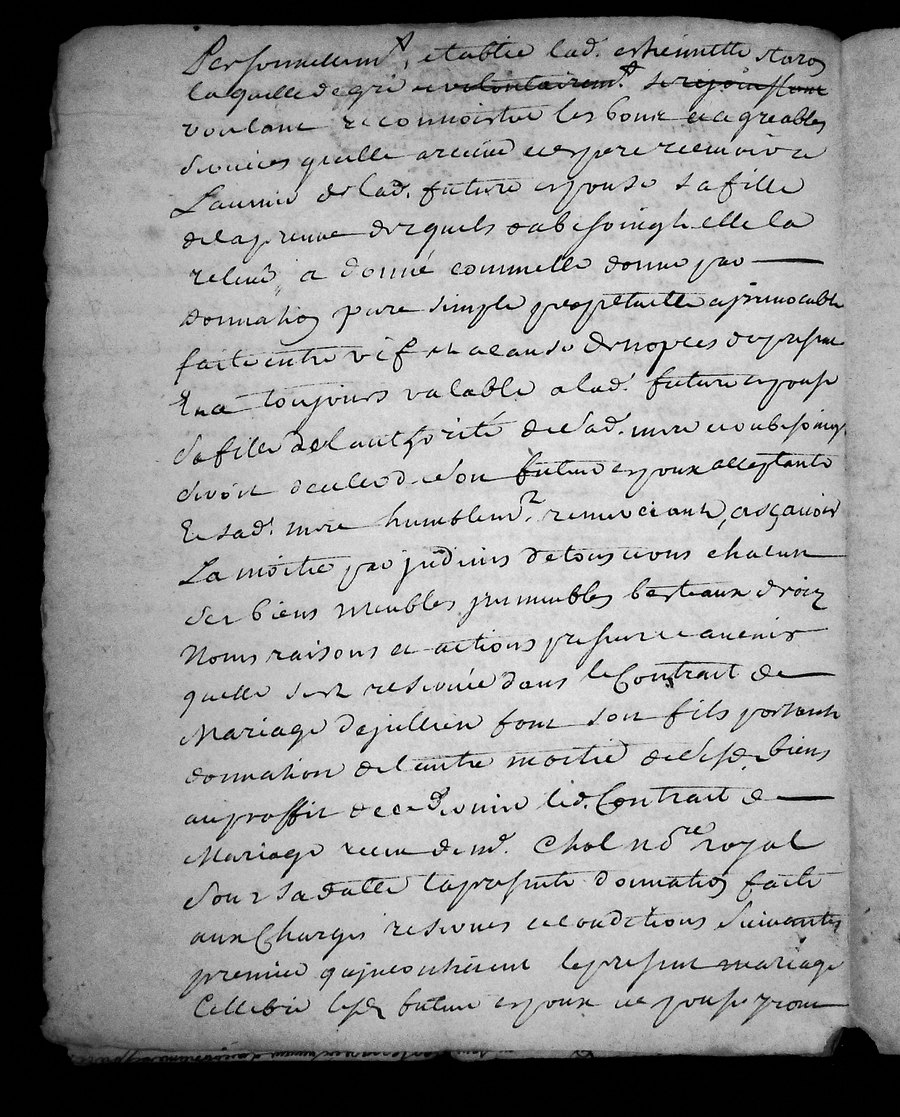 Personnellemt, establie lad. estiennette
laquelle de gré et volontairemt. se rejouissant
voulant reconnoistre les bons et agreables
services quelle a receüe et espere recepvoir a
Ladvenir de lad. future espouse sa fille
de la preuve desquels et a besoingt elle la
releve, a donné comme elle donne par
donnation pure simple perpetuelle et irrevocable
faite entre vif et a cause de nopces des present
Et a toujours valable a lad. future espouse
sa fille de l'authorité de sad. mere et au besoingt
de celle de son futur espoux acceptante
Et sad. mere humblemt. remerciant, a sçavoir
La moitie par indivis de tous et uns chacun
ses biens meubles immeubles bestiaux droits
Noms raisons et actions presens et avenir
quelle sest reservée dans le Contract de
Mariage de jullien font son fils portant
donnation de l'autre moitié de sesd. biens
au proffit de ced. led. Contract de
Mariage receu de me. Chol nore royal
Sous sa datte la presente donnation faite
aux Charges reserves et conditions Suivantes
premier qu'incontinent le present mariage
Cellebré lesd. futur espoux et espouse